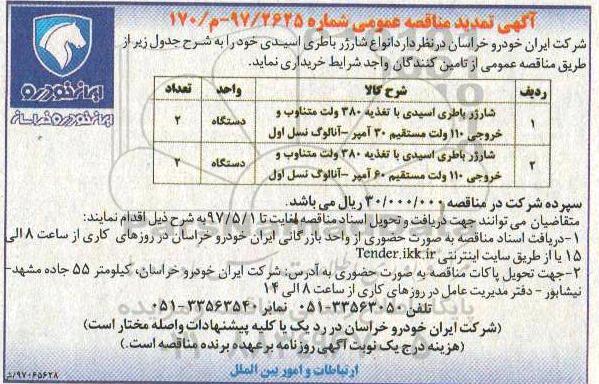 آگهی تمدید مناقصه عمومی شماره ۹۷/۲۶۲۵-م/۱۷۰
ایران خودرو
ایران خودرو خراسان
شرکت ایران خودرو خراسان درنظر دارد انواع شارژر باطری اسیدی خود را به شرح جدول زیر از
طریق مناقصه عمومی از تامین کنندگان واجد شرایط خریداری نماید.
ردیف شرح کالا واحد تعداد
۱ شارژر باطری اسیدی با تغذیه ۳۸۰ ولت متناوب و
خروجی ۱۱۰ ولت مستقیم ۳۰ آمپر –آنالوگ نسل اول دستگاه ۲
۲ شارژر باطری اسیدی با تغذیه ۳۸۰ ولت متناوب و
خروجی ۱۱۰ ولت مستقیم ۶۰ آمپر –آنالوگ نسل اول دستگاه ۲
سپرده شرکت در مناقصه ۳۰/۰۰۰/۰۰۰ ریال می باشد.
متقاضیان می توانند جهت دریافت و تحویل اسناد مناقصه لغایت تا ۹۷/۵/۱ به شرح ذیل اقدام نمایند:
۱-دریافت اسناد مناقصه به صورت حضوری از واحد بازرگانی ایران خودرو خراسان در روزهای کاری از ساعت ۸ الی
۱۵ یا از طریق سایت اینترنتی Tender.ikk.ir
۲-جهت تحویل پاکات مناقصه به صورت حضوری به آدرس: شرکت ایران خودرو خراسان، کیلومتر ۵۵ جاده مشهد-
نیشابور - دفتر مدیریت عامل در روزهای کاری از ساعت ۸ الی ۱۴
تلفن ۳۳۵۶۳۰۵۰-۰۵۱ نمابر ۳۳۵۶۳۵۴۰-۰۵۱
(شرکت ایران خودرو خراسان در رد یک یا کلیه پیشنهادات واصله مختار است)
(هزینه درج یک نوبت آگهی روزنامه برعهده برنده مناقصه است.)
ارتباطات و امور بین الملل
۹۷۰۶۵۶۲۸/ش